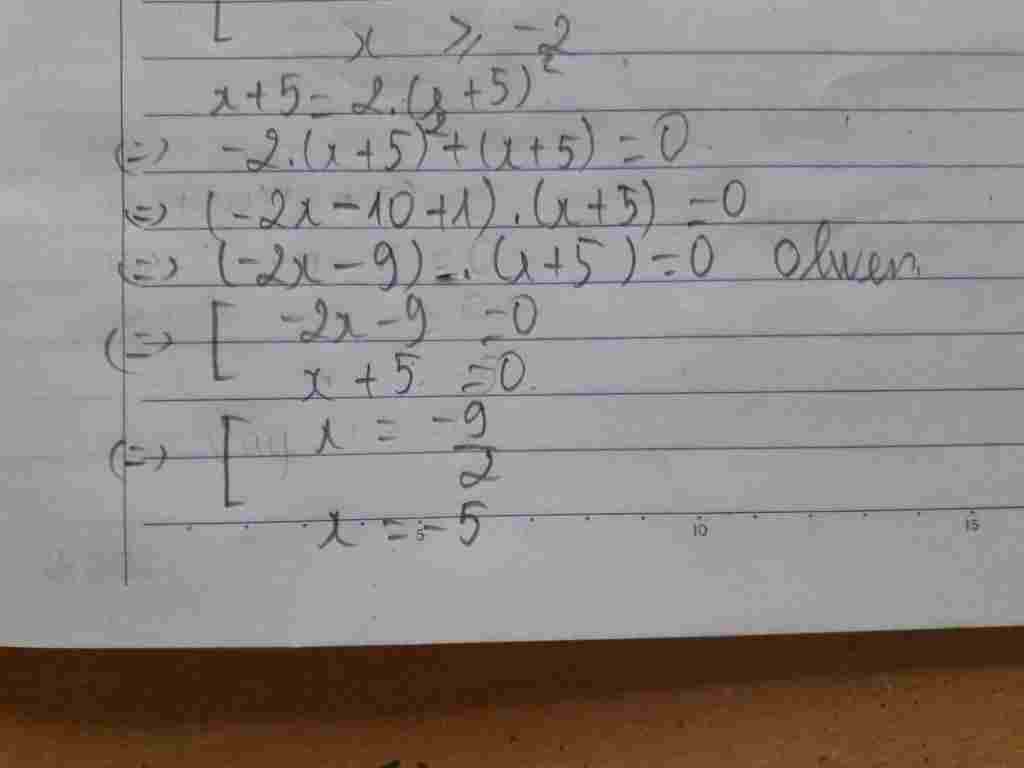 [ x ⩾ -2
x+5 = 2.(x+5)²
(=) -2.(x+5)²+(x+5) = 0
(=) (-2x-10+1).(x+5) = 0
(=) (-2x-9).(x+5) = 0 Olwen
(=) [ -2x-9 = 0
x+5 = 0.
(=) [ x = -9/2
x = -5
5 10 15